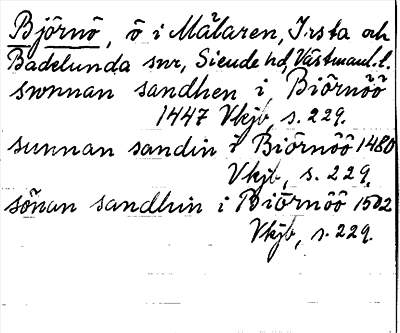 Björnö, ö i Mälaren, Irsta och
Badelunda snr, Siende hd, Västmanl. l.
swnnan sandhen i Biörnöö
1447 Vkjb, s. 229.
sunnan sandin i Biörnöö 1480
Vkjb, s. 229.
sönan sandhin i Biörnöö 1502
Vkjb, s. 229.